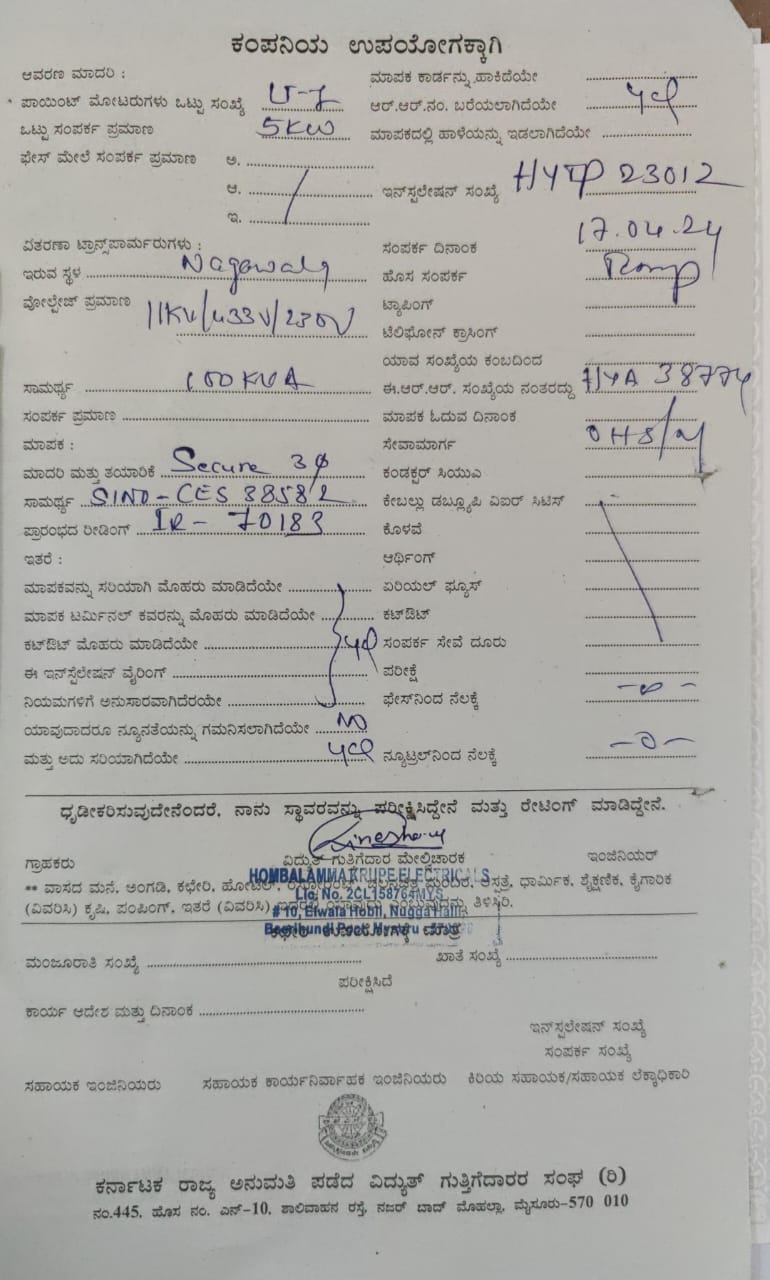 ಕಂಪನಿಯ ಉಪಯೋಗಕ್ಕಾಗಿ
ಆವರಣ ಮಾದರಿ : ಮಾಪಕ ಕಾರ್ಡನ್ನು ಹಾಕಿದೆಯೇ
ಪಾಯಿಂಟ್ ಮೋಟರುಗಳು ಒಟ್ಟು ಸಂಖ್ಯೆ ಆರ್.ಆರ್.ನಂ. ಬರೆಯಲಾಗಿದೆಯೇ
ಒಟ್ಟು ಸಂಪರ್ಕ ಪ್ರಮಾಣ 5KW ಮಾಪಕದಲ್ಲಿ ಹಾಳೆಯನ್ನು ಇಡಲಾಗಿದೆಯೇ
ಫೇಸ್ ಮೇಲೆ ಸಂಪರ್ಕ ಪ್ರಮಾಣ ಅ.
ಆ. ಇನ್‌ಸ್ಟಲೇಷನ್ ಸಂಖ್ಯೆ HYTP 23012
ಇ.
ವಿತರಣಾ ಟ್ರಾನ್ಸ್‌ಪಾರ್ಮರುಗಳು : ಸಂಪರ್ಕ ದಿನಾಂಕ 17.04.24
ಇರುವ ಸ್ಥಳ ಹೊಸ ಸಂಪರ್ಕ
ವೋಲ್ಟೇಜ್ ಪ್ರಮಾಣ 11KV/433V/230V ಟ್ಯಾಪಿಂಗ್
ಟೆಲಿಫೋನ್ ಕ್ರಾಸಿಂಗ್
ಯಾವ ಸಂಖ್ಯೆಯ ಕಂಬದಿಂದ
ಸಾಮರ್ಥ್ಯ 100KVA ಈ.ಆರ್.ಆರ್. ಸಂಖ್ಯೆಯ ನಂತರದ್ದು HYA 38774
ಸಂಪರ್ಕ ಪ್ರಮಾಣ ಮಾಪಕ ಓದುವ ದಿನಾಂಕ
ಮಾಪಕ : ಸೇವಾಮಾರ್ಗ
ಮಾದರಿ ಮತ್ತು ತಯಾರಿಕೆ Secure 3φ ಕಂಡಕ್ಟರ್ ಸಿಯುಎ
ಸಾಮರ್ಥ್ಯ SINO-CES 38582 ಕೇಬಲ್ಲು ಡಬ್ಲ್ಯೂಪಿ ವಿಐರ್ ಸಿಟಿಸ್
ಪ್ರಾರಂಭದ ರೀಡಿಂಗ್ IR- 70183 ಕೊಳವೆ
ಇತರೆ : ಆರ್ಥಿಂಗ್
ಮಾಪಕವನ್ನು ಸರಿಯಾಗಿ ಮೊಹರು ಮಾಡಿದೆಯೇ ಏರಿಯಲ್ ಫ್ಯೂಸ್
ಮಾಪಕ ಟರ್ಮಿನಲ್ ಕವರನ್ನು ಮೊಹರು ಮಾಡಿದೆಯೇ ಕಟ್‌ಔಟ್
ಕಟ್‌ಔಟ್ ಮೊಹರು ಮಾಡಿದೆಯೇ ಸಂಪರ್ಕ ಸೇವೆ ದೂರು
ಈ ಇನ್‌ಸ್ಟೆಲೇಷನ್ ವೈರಿಂಗ್ ಪರೀಕ್ಷೆ
ನಿಯಮಗಳಿಗೆ ಅನುಸಾರವಾಗಿದೆರಯೇ ಫೇಸ್‌ನಿಂದ ನೆಲಕ್ಕೆ
ಯಾವುದಾದರೂ ನ್ಯೂನತೆಯನ್ನು ಗಮನಿಸಲಾಗಿದೆಯೇ NO
ಮತ್ತು ಅದು ಸರಿಯಾಗಿದೆಯೇ ನ್ಯೂಟ್ರಲ್‌ನಿಂದ ನೆಲಕ್ಕೆ
ಧೃಡೀಕರಿಸುವುದೇನೆಂದರೆ, ನಾನು ಸ್ಥಾವರವನ್ನು ಪರೀಕ್ಷಿಸಿದ್ದೇನೆ ಮತ್ತು ರೇಟಿಂಗ್ ಮಾಡಿದ್ದೇನೆ.
ಗ್ರಾಹಕರು ವಿದ್ಯುತ್ ಗುತ್ತಿಗೆದಾರ ಮೇಲ್ವಿಚಾರಕ ಇಂಜಿನಿಯರ್
HOMBALAMMA KRUPE ELECTRICALS
** ವಾಸದ ಮನೆ, ಅಂಗಡಿ, ಕಛೇರಿ, ಹೋಟೆಲ್, ಆಸ್ಪತ್ರೆ, ಧಾರ್ಮಿಕ, ಶೈಕ್ಷಣಿಕ, ಕೈಗಾರಿಕೆ
Lic. No. 2CL158764MYS
(ವಿವರಿಸಿ) ಕೃಷಿ, ಪಂಪಿಂಗ್, ಇತರೆ (ವಿವರಿಸಿ) ತಿಳಿಸಿರಿ.
# 10, Elwala Hobli, Nugga Halli
ಮಂಜೂರಾತಿ ಸಂಖ್ಯೆ ಖಾತೆ ಸಂಖ್ಯೆ
ಪರೀಕ್ಷಿಸಿದೆ
ಕಾರ್ಯ ಆದೇಶ ಮತ್ತು ದಿನಾಂಕ
ಇನ್‌ಸ್ಟಲೇಷನ್ ಸಂಖ್ಯೆ
ಸಂಪರ್ಕ ಸಂಖ್ಯೆ
ಸಹಾಯಕ ಇಂಜಿನಿಯರು ಸಹಾಯಕ ಕಾರ್ಯನಿರ್ವಾಹಕ ಇಂಜಿನಿಯರು ಕಿರಿಯ ಸಹಾಯಕ/ಸಹಾಯಕ ಲೆಕ್ಕಾಧಿಕಾರಿ
ಕರ್ನಾಟಕ ರಾಜ್ಯ ಅನುಮತಿ ಪಡೆದ ವಿದ್ಯುತ್ ಗುತ್ತಿಗೆದಾರರ ಸಂಘ (ರಿ)
ನಂ.445, ಹೊಸ ನಂ. ಎನ್-10, ಶಾಲಿವಾಹನ ರಸ್ತೆ, ನಜರ್ ಬಾದ್ ಮೊಹಲ್ಲಾ, ಮೈಸೂರು-570 010